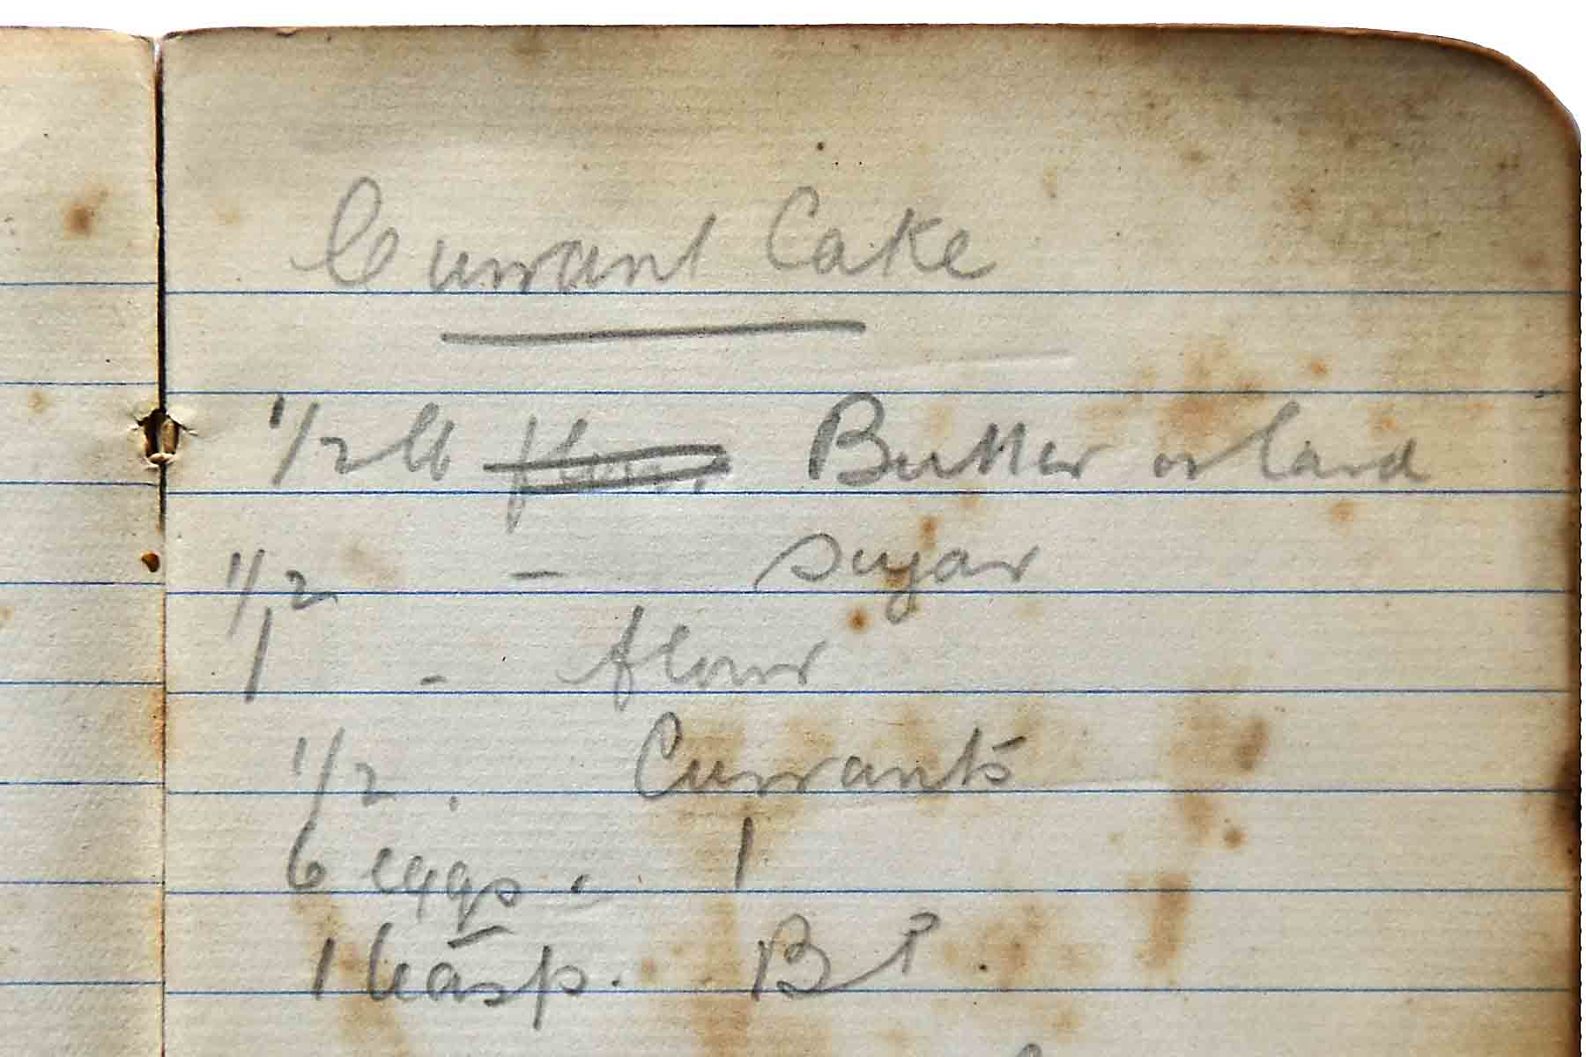 Currant Cake
1/2 lb flour Butter or lard
1/2 - sugar
1 - flour
1/2 . Currants
6 eggs . 1
1 teasp. B P.